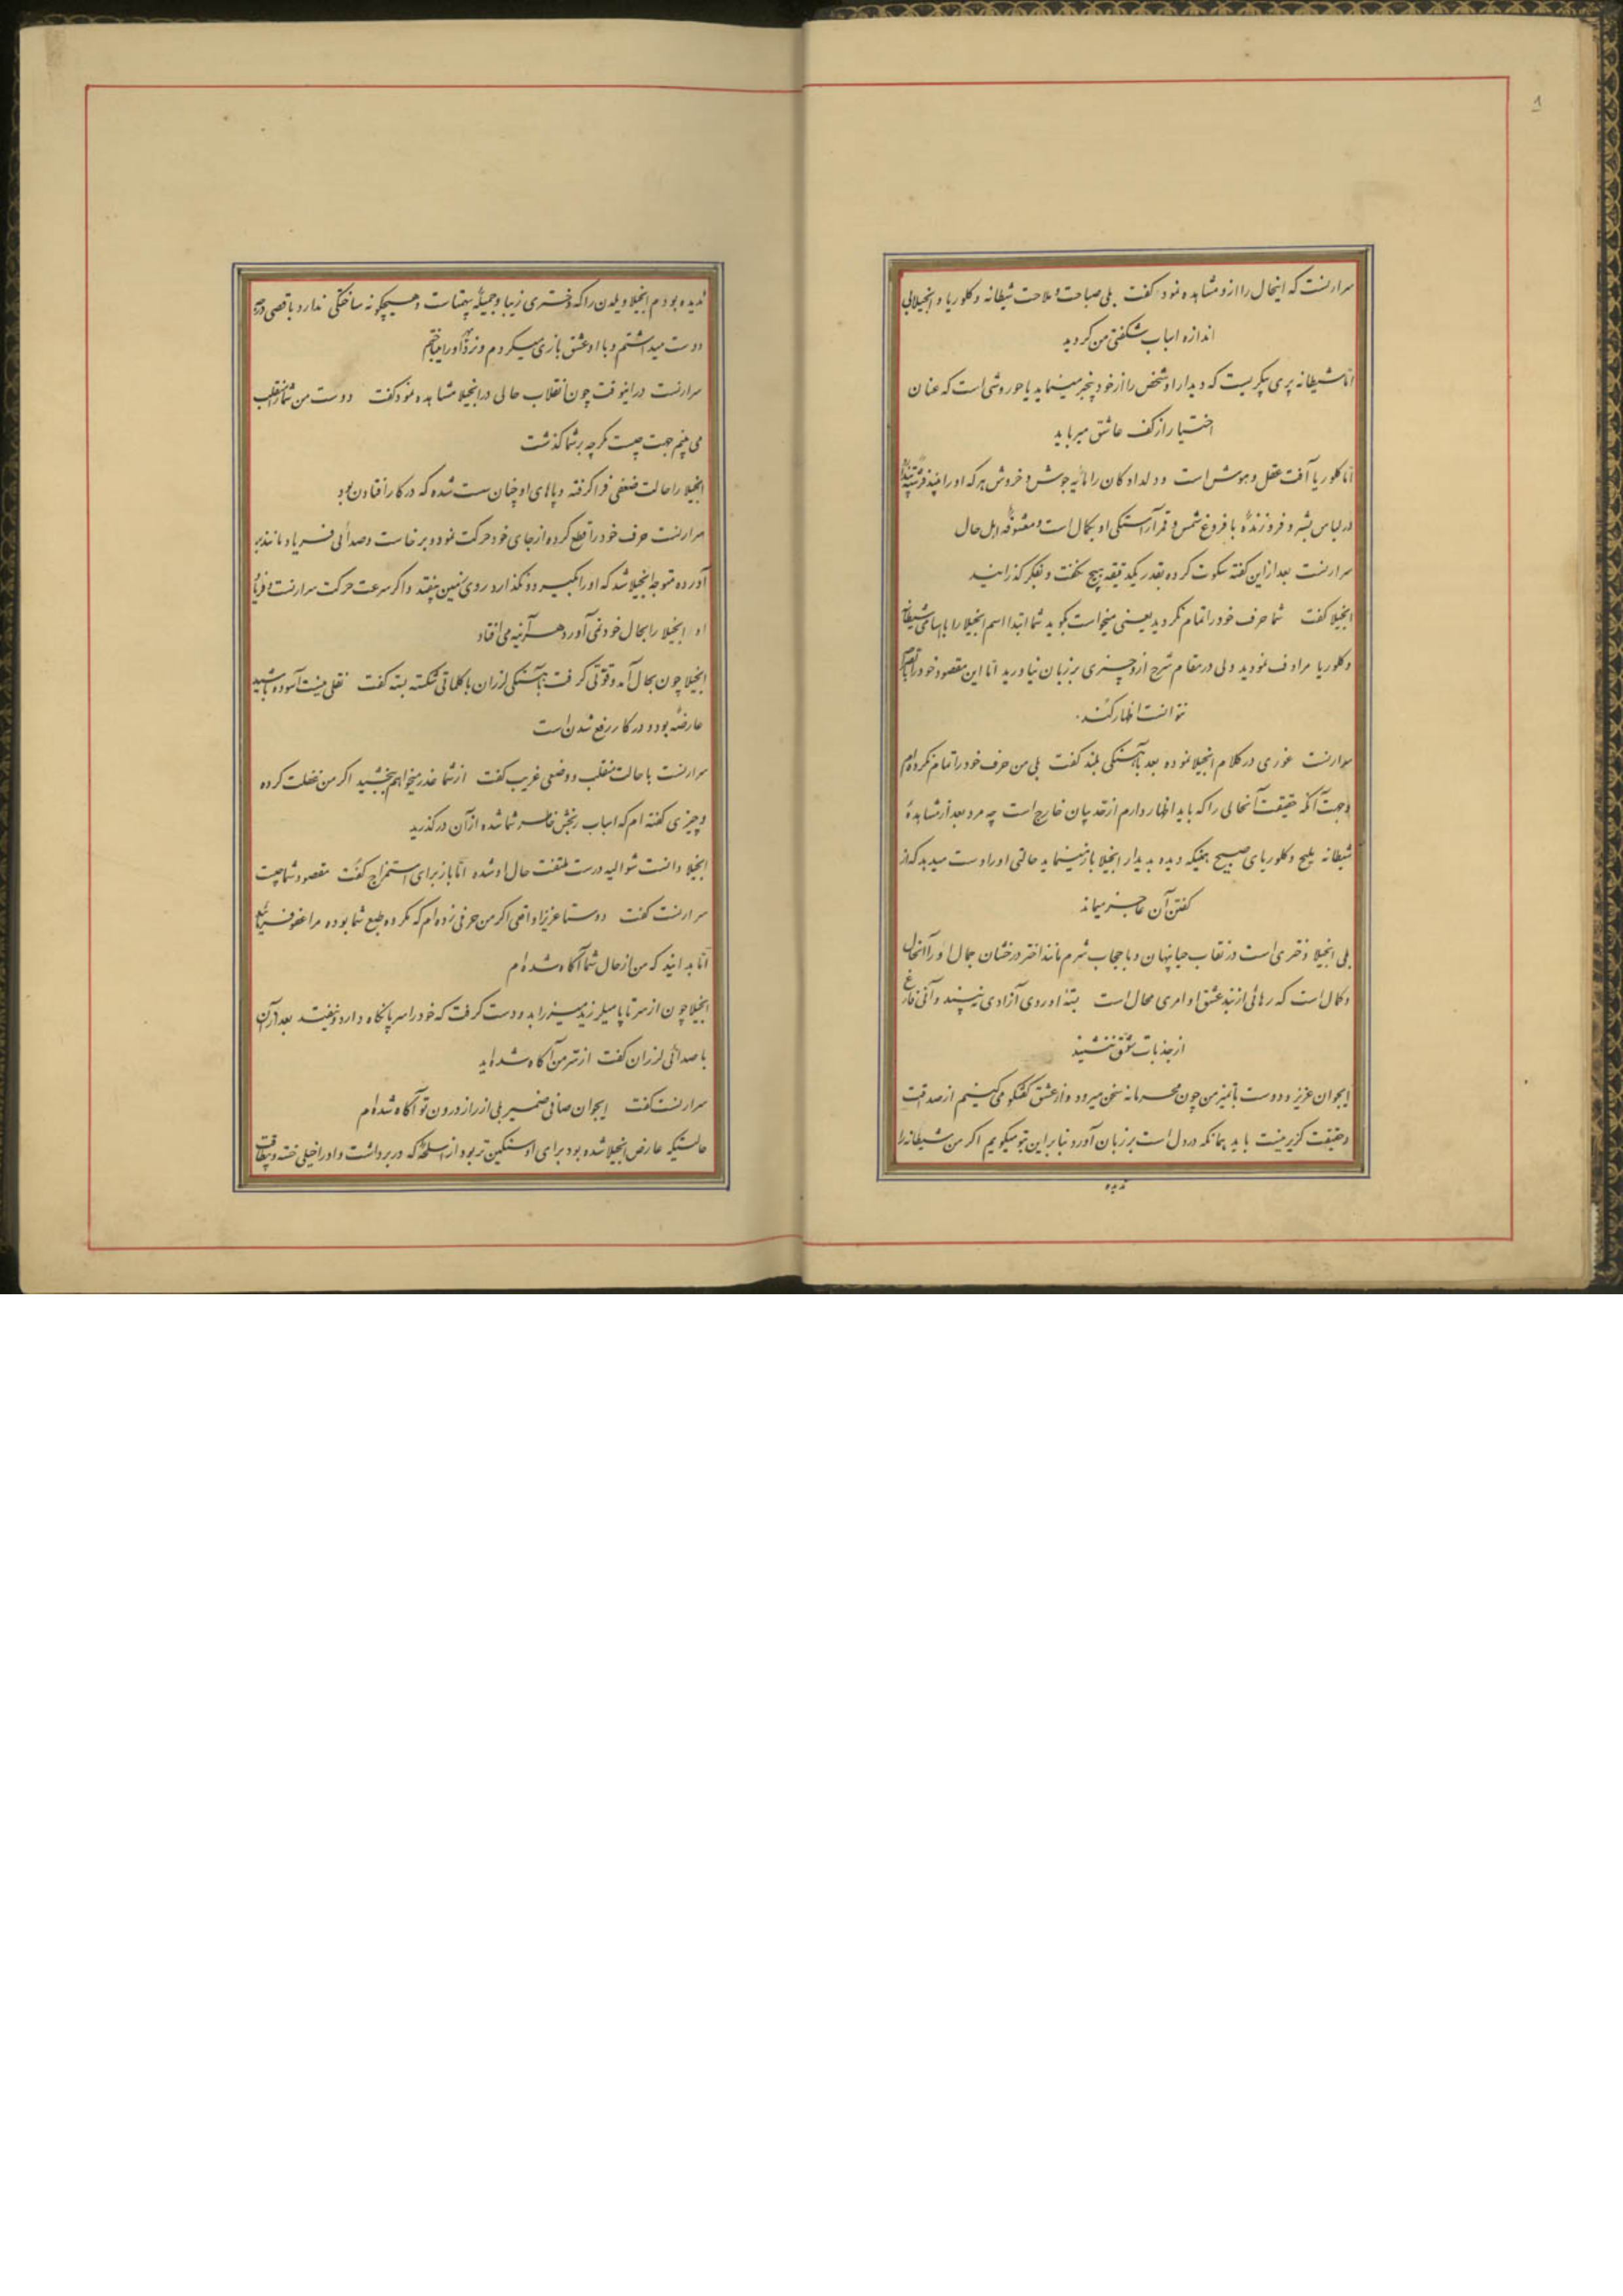 سرارنست که اینحال را ازو مشاهده نمود گفت بلی صباحت و ملاحت شیطانه و کلوریا و انجیلا بی
اندازه اسباب شگفتی من گردید
امّا شیطانه پری پیکریست که دیدار او شخص را از خود بیخبر مینماید یا حوروشی است که عنان
اختیار از کف عاشق میرباید
امّا کلوریا آفت عقل و هوش است و دلدادکان را مایه جوش و خروش هر که او را بیند
در لباس بشر و فروزنده با فروغ شمس و قمر آراستگی او بکمال است و معشوقه اهل حال
سرارنست بعد از این گفته سکوت کرده بقدر یکدقیقه هیچ نگفت و بفکر گذرانید
انجیلا گفت شما حرف خود را تمام نکردید یعنی میخواست بگوید شما ابتدا اسم انجیلا را با اسامی شیطانه
و کلوریا مرادف نمودید ولی در مقام شرح ازو چیزی بر زبان نیاورید امّا این مقصود خود را
نتوانست اظهار کند.
سرارنست غوری در کلام انجیلا نموده بعد بآهستگی بلند گفت بلی من حرف خود را تمام نکرده‌ام
و جهت آنکه حقیقت آنحالی را که باید اظهار دارم از حدّ بیان خارج است چه مرد بعد از مشاهدهٔ
شیطانه ملیح و کلوریای صبیح همینکه دیده بدیدار انجیلا باز مینماید حالتی او را دست میدهد که از
گفتن آن عاجز میماند
بلی انجیلا دختری است در نقاب حیا پنهان و با حجاب شرم مانند اختر درخشان جمال او را آنحال
و کمال است که رهائی از بند عشق او امری محال است بستهٔ او روی آزادی نبیند و آنی فارغ
از جذبات عشق ننشیند
ایجوان عزیز و دوست با تمیز من چون محرمانه سخن میرود و از عشق گفتگو می‌کنیم از صداقت
و حقیقت گزیر نیست باید همانکه در دل است بر زبان آورد بنابراین بتو میگویم اگر من شیطانه را
ندیده
ندیده بودم انجیلا ویلدن را که دختری زیبا و جمیلهٔ بیهمتاست و هیچگونه ساختگی ندارد با قصی درجه
دوست میداشتم و با او عشق بازی میکردم و نرد او را میباختم
سرارنست در اینوقت چون انقلاب حالی در انجیلا مشاهده نمود گفت دوست من شما را منقلب
می بینم جهت چیست مگر چه بر شما گذشت
انجیلا را حالت ضعفی فرا گرفته و پاهای او چنان سست شده که در کار افتادن بود
سرارنست حرف خود را قطع کرده از جای خود حرکت نمود و برخاست و صدائی فریاد مانند بر
آورده متوجه انجیلا شد که او را بگیرد و نگذارد روی زمین بیفتد و اگر سرعت حرکت سرارنست و فریاد
او انجیلا را بحال خود نمی آورد هر آینه می افتاد
انجیلا چون بحال آمد و قوّتی گرفت بآهستگی لرزان با کلماتی شکسته بسته گفت نقلی نیست آسوده باشید
عارضهٔ بود و در کار رفع شدن است
سرارنست با حالت منقلب و وضعی غریب گفت از شما عذر میخواهم ببخشید اگر من غفلت کرده
و چیزی گفته ام که اسباب رنجش خاطر شما شده از آن درگذرید
انجیلا دانست شوالیه درست ملتفت حال او شده امّا باز برای استمزاج گفت مقصود شما چیست
سرارنست گفت دوستا عزیزا واقعی اگر من حرفی زده ام که مکروه طبع شما بوده مرا عفو فرمائید
امّا بدانید که من از حال شما آگاه شده‌ام
انجیلا چون از سر تا پا میلرزید میز را بدو دست گرفت که خود را سرپا نگاه دارد و نیفتد بعد از آن
با صدائی لرزان گفت از سرّ من آگاه شده‌اید
سرارنست گفت ایجوان صافی ضمیر بلی از راز درون تو آگاه شده‌ام
حالتیکه عارض انجیلا شده بود برای او سنگین تر بود از اسلحهٔ که در برداشت و او را خیلی خسته و بیطاقت